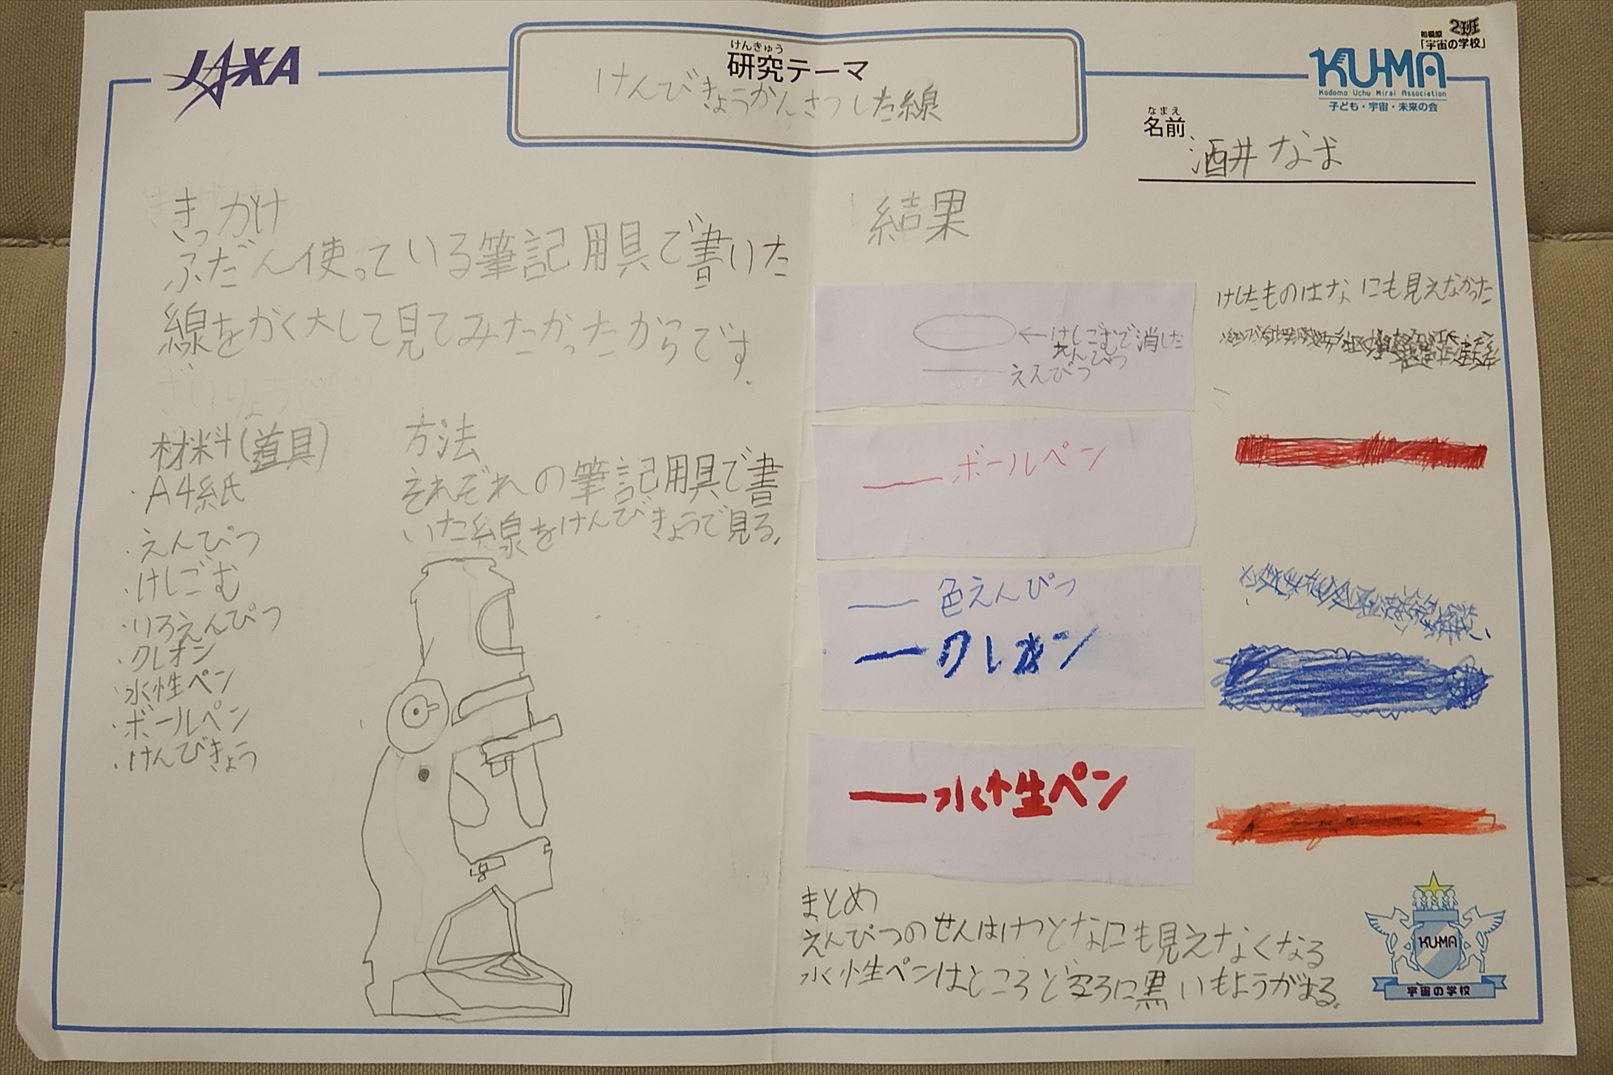 JAXA
けんきゅう
研究テーマ
けんびきょうかんさつした線
相模原 2班
「宇宙の学校」
KU-MA
Kodomo Uchu Mirai Association
子ども・宇宙・未来の会
なまえ
名前
酒井なお
きっかけ
ふだん使っている筆記用具で書いた
線をかく大して見てみたかったからです。
材料(道具)
・A4紙
・えんぴつ
・けしごむ
・いろえんぴつ
・クレオン
・水性ペン
・ボールペン
・けんびきょう
方法
それぞれの筆記用具で書
いた線をけんびきょうで見る。
結果
←けしごむで消した
えんぴつ
えんぴつ
けしたものはなにも見えなかった
ボールペン
色えんぴつ
クレオン
水性ペン
まとめ
えんぴつのせんはけつとなにも見えなくなる
水性ペンはところどころに黒いもようがある。
KU-MA
宇宙の学校